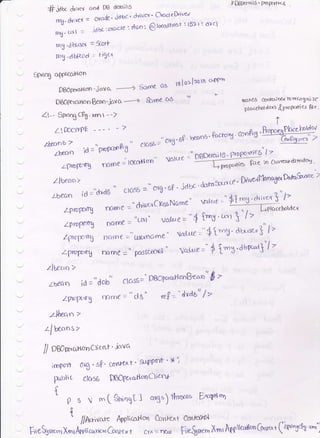 # jdbc driver and DB details
//DBDetails.properties
my.driver = oracle.jdbc.driver.OracleDriver
my.url = jdbc:oracle:thin:@localhost:1521:orcl
my.dbuser = Scott
my.dbpwd = tiger
Spring application
DBOperation.java → Same as 18/02/2013 appn
DBOperationBean.java → Same as "
<!-- Spring Cfg.xml -->
makes container to recognize placeholders & properties file.
<!DOCTYPE - - - - >
<beans>
<bean id="propconfig" class="org.sf.beans.factory.config.PropertyPlaceholderConfigurer">
<property name="location" value="DBDetails.properties"/>
properties file in current directory
</bean>
<bean id="drds" class="org.sf.jdbc.datasource.DriverManagerDataSource">
<property name="driverClassName" value="${my.driver}"/>
Placeholder
<property name="url" value="${my.url}"/>
<property name="username" value="${my.dbuser}"/>
<property name="password" value="${my.dbpwd}"/>
</bean>
<bean id="dob" class="DBOperationBean">
<property name="ds" ref="drds"/>
</bean>
</beans>
// DBOperationClient.java
import org.sf.context.support.*;
public class DBOperationClient
{
p s v m(String[] args) throws Exception
{
//Activate Application Context Container
FileSystemXmlApplicationContext ctx = new FileSystemXmlApplicationContext("springcfg.xml"